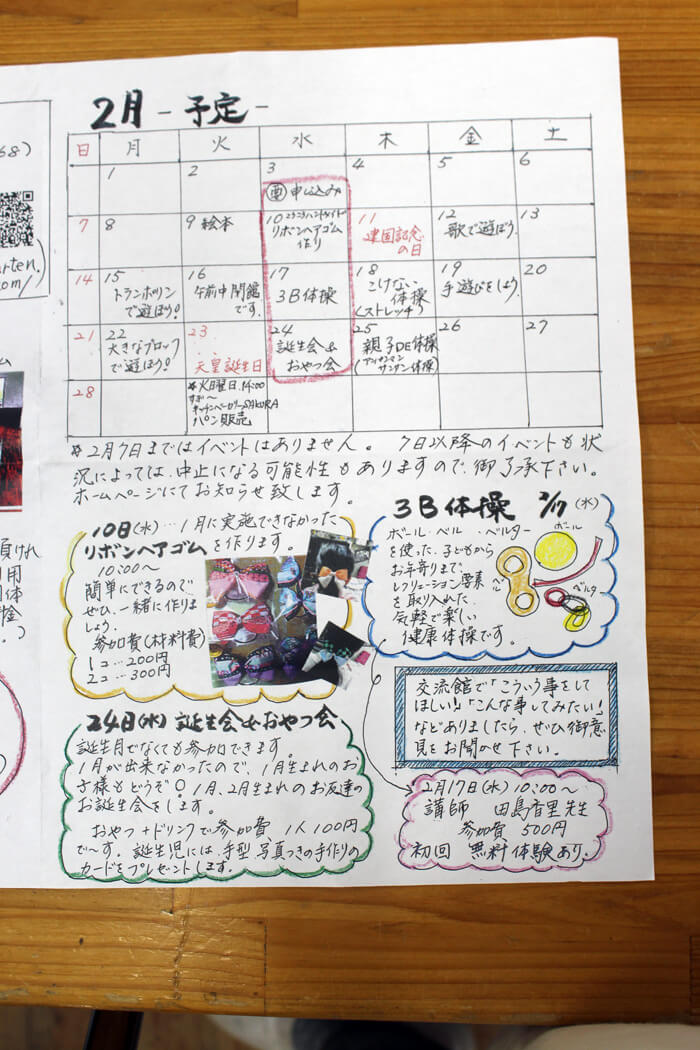 2月 -予定-
日 月 火 水 木 金 土
1 2 3 4 5 6
要 申し込み
7 8 9 絵本 10 11 建国記念の日 12 歌で遊ぼう 13
リボンヘアゴム
作り
14 15 トランポリンで遊ぼう! 16 午前中開館です。 17 3B体操 18 こけない体操(ストレッチ) 19 手遊びをしよう 20
21 22 大きなブロックで遊ぼう! 23 天皇誕生日 24 誕生会&おやつ会 25 親子DE体操(アンパンマンサンサン体操) 26 27
28
*火曜日.14:00
すぎ〜
キッチンベーカリーSAKURA
パン販売
*2月7日まではイベントはありません。 7日以降のイベントも状
況によっては、中止になる可能性もありますので、御了承下さい。
ホームページにてお知らせ致します。
10日(水)…1月に実施できなかった
リボンヘアゴムを作ります。
10:00〜
簡単にできるので
ぜひ、一緒に作りま
しょう。
参加費(材料費)
1コ…200円
2コ…300円
3B体操 2/17(水)
ボール・ベル・ベルター
を使った、子どもから
お年寄りまで、
レクリェーション要素
を取り入れた、
気軽で楽しい
健康体操です。
ボール
ベル
ベルター
24日(水) 誕生会&おやつ会
誕生月でなくても参加できます。
1月が出来なかったので、1月生まれのお
子様もどうぞ! 1月、2月生まれのお友達の
お誕生会をします。
おやつ+ドリンクで参加費 1人100円
で〜す。誕生児には、手型、写真つきの手作りの
カードをプレゼントします。
交流館で「こういう事をして
ほしい!」「こんな事してみたい!」
などありましたら、ぜひ御意
見をお聞かせ下さい。
2月17日(水) 10:00〜
講師 田島香里先生
参加費 500円
初回 無料体験あり。
68)
arten.
com/)
頂けれ
用
体
金
。)